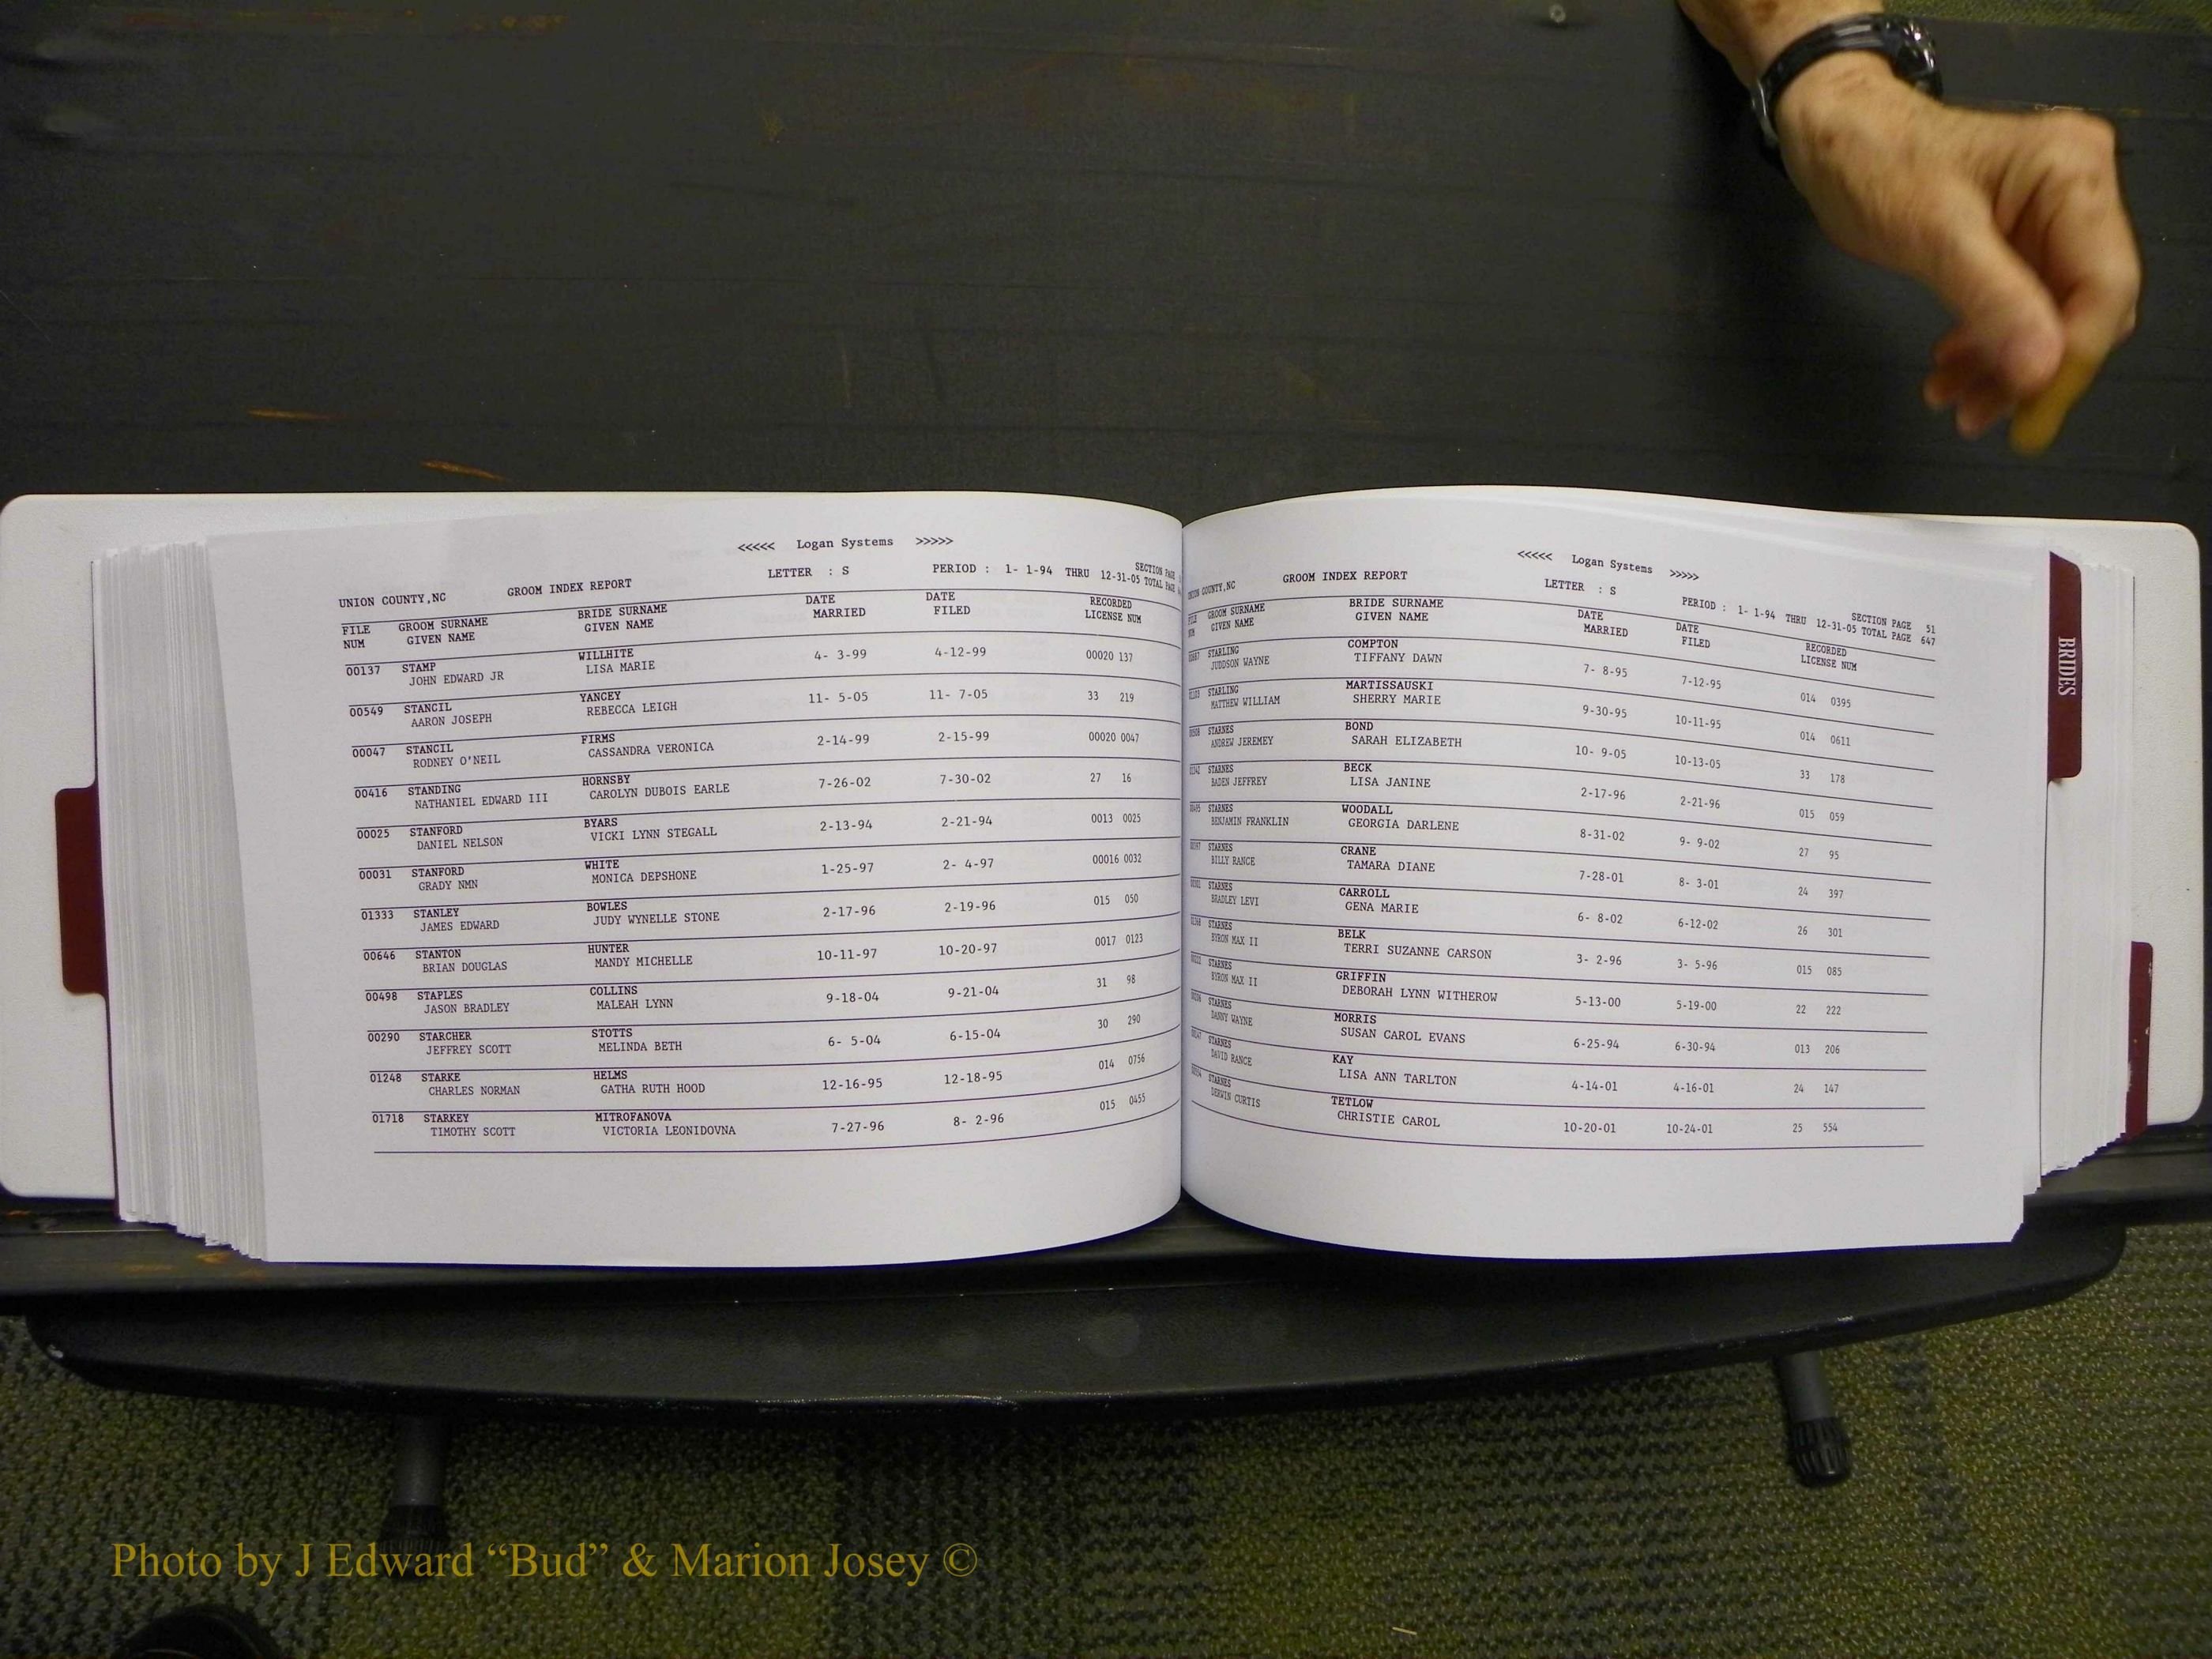 <<<<< Logan Systems >>>>>
UNION COUNTY,NC GROOM INDEX REPORT LETTER : S PERIOD : 1- 1-94 THRU 12-31-05 SECTION PAGE
TOTAL PAGE
FILE GROOM SURNAME BRIDE SURNAME DATE DATE RECORDED
NUM GIVEN NAME GIVEN NAME MARRIED FILED LICENSE NUM
00137 STAMP WILLHITE 4- 3-99 4-12-99 00020 137
JOHN EDWARD JR LISA MARIE
00549 STANCIL YANCEY 11- 5-05 11- 7-05 33 219
AARON JOSEPH REBECCA LEIGH
00047 STANCIL FIRMS 2-14-99 2-15-99 00020 0047
RODNEY O'NEIL CASSANDRA VERONICA
00416 STANDING HORNSBY 7-26-02 7-30-02 27 16
NATHANIEL EDWARD III CAROLYN DUBOIS EARLE
00025 STANFORD BYARS 2-13-94 2-21-94 0013 0025
DANIEL NELSON VICKI LYNN STEGALL
00031 STANFORD WHITE 1-25-97 2- 4-97 00016 0032
GRADY NMN MONICA DEPSHONE
01333 STANLEY BOWLES 2-17-96 2-19-96 015 050
JAMES EDWARD JUDY WYNELLE STONE
00646 STANTON HUNTER 10-11-97 10-20-97 0017 0123
BRIAN DOUGLAS MANDY MICHELLE
00498 STAPLES COLLINS 9-18-04 9-21-04 31 98
JASON BRADLEY MALEAH LYNN
00290 STARCHER STOTTS 6- 5-04 6-15-04 30 290
JEFFREY SCOTT MELINDA BETH
01248 STARKE HELMS 12-16-95 12-18-95 014 0756
CHARLES NORMAN GATHA RUTH HOOD
01718 STARKEY MITROFANOVA 7-27-96 8- 2-96 015 0455
TIMOTHY SCOTT VICTORIA LEONIDOVNA
<<<<< Logan Systems >>>>>
UNION COUNTY,NC GROOM INDEX REPORT LETTER : S PERIOD : 1- 1-94 THRU 12-31-05 SECTION PAGE 51
TOTAL PAGE 647
FILE GROOM SURNAME BRIDE SURNAME DATE DATE RECORDED
NUM GIVEN NAME GIVEN NAME MARRIED FILED LICENSE NUM
STARLING COMPTON 7- 8-95 7-12-95 014 0395
JUDDSON WAYNE TIFFANY DAWN
STARLING MARTISSAUSKI 9-30-95 10-11-95 014 0611
MATTHEW WILLIAM SHERRY MARIE
STARNES BOND 10- 9-05 10-13-05 33 178
ANDREW JEREMEY SARAH ELIZABETH
STARNES BECK 2-17-96 2-21-96 015 059
BADEN JEFFREY LISA JANINE
STARNES WOODALL 8-31-02 9- 9-02 27 95
BENJAMIN FRANKLIN GEORGIA DARLENE
STARNES CRANE 7-28-01 8- 3-01 24 397
BILLY RANCE TAMARA DIANE
STARNES CARROLL 6- 8-02 6-12-02 26 301
BRADLEY LEVI GENA MARIE
STARNES BELK 3- 2-96 3- 5-96 015 085
BYRON MAX II TERRI SUZANNE CARSON
STARNES GRIFFIN 5-13-00 5-19-00 22 222
BYRON MAX II DEBORAH LYNN WITHEROW
STARNES MORRIS 6-25-94 6-30-94 013 206
DANNY WAYNE SUSAN CAROL EVANS
STARNES KAY 4-14-01 4-16-01 24 147
DAVID RANCE LISA ANN TARLTON
STARNES TETLOW 10-20-01 10-24-01 25 554
DERWIN CURTIS CHRISTIE CAROL
BRIDES
Photo by J Edward “Bud” & Marion Josey ©